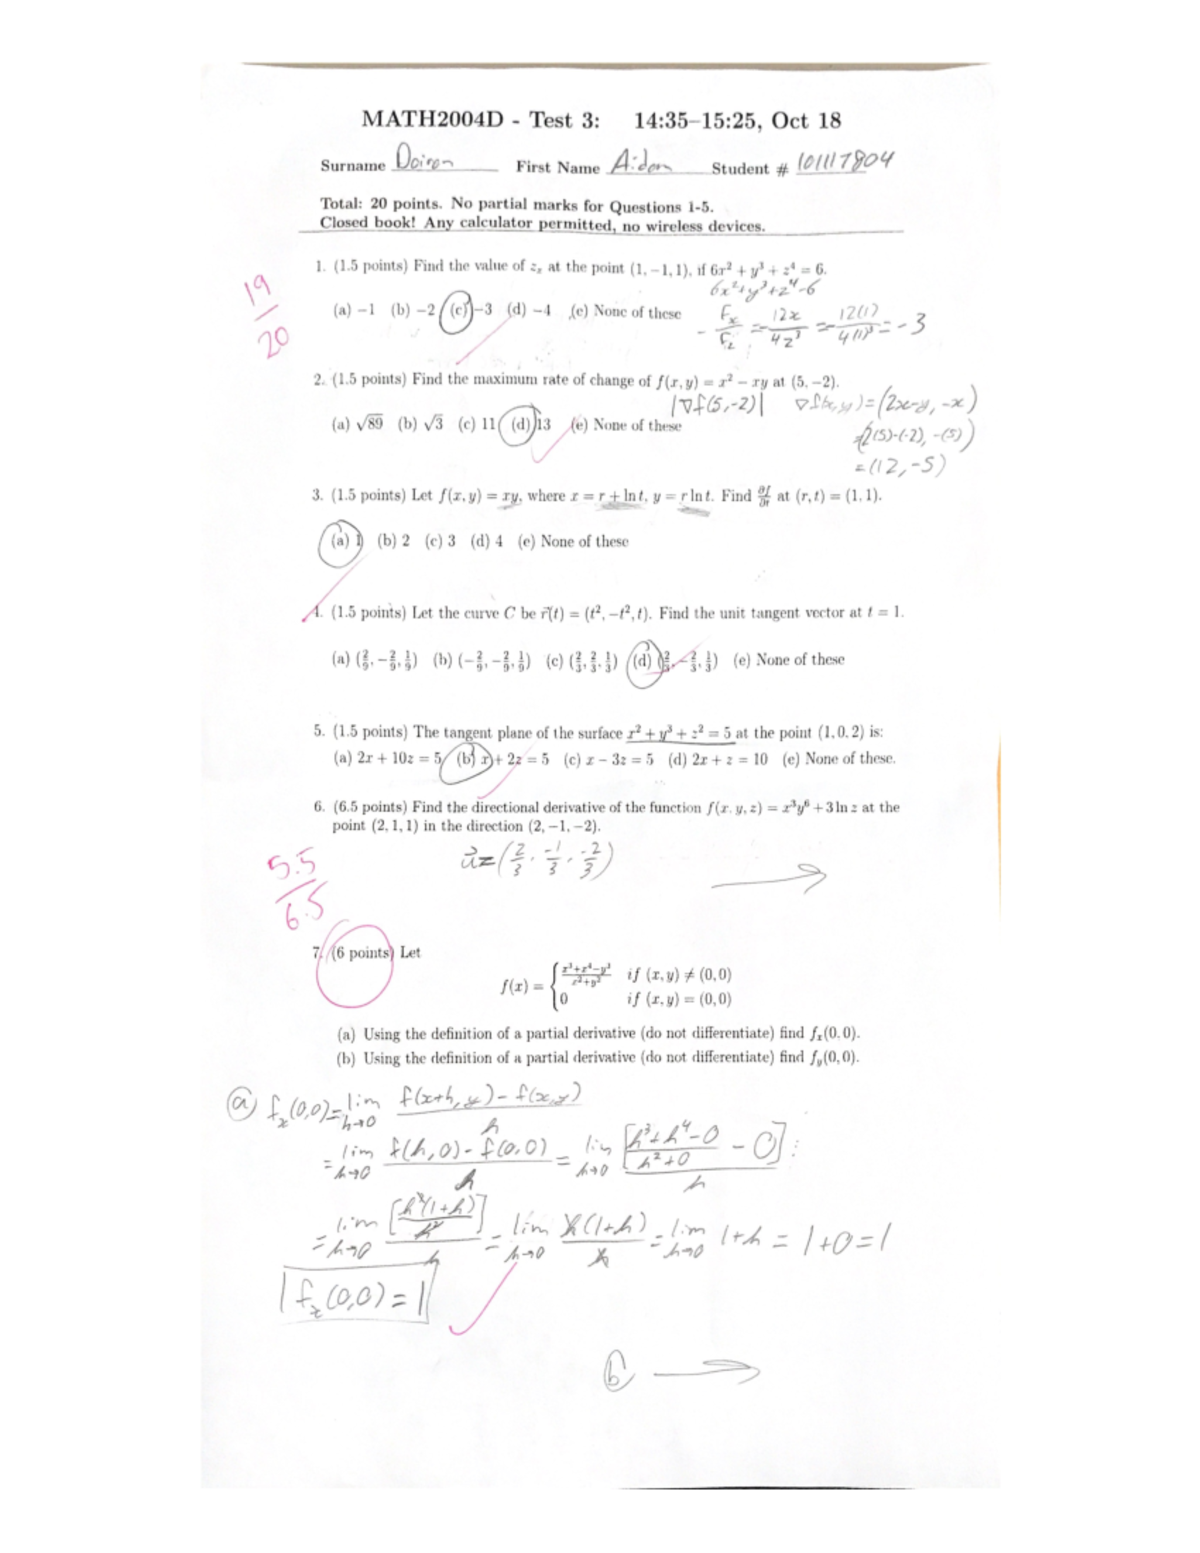 MATH2004D - Test 3: 14:35–15:25, Oct 18
Surname Doiron First Name Aidan Student # 101117804
Total: 20 points. No partial marks for Questions 1-5.
Closed book! Any calculator permitted, no wireless devices.
19/20
1. (1.5 points) Find the value of z_x at the point (1, −1, 1), if 6x² + y³ + z⁴ = 6.
6x²+y³+z⁴-6
(a) −1 (b) −2 (c) −3 (d) −4 (e) None of these
- F_x/F_z = -12x/4z³ = -12(1)/4(1)³ = -3
2. (1.5 points) Find the maximum rate of change of f(x, y) = x² − xy at (5, −2).
|∇f(5,-2)| ∇f(x,y)=(2x-y, -x)
(a) √89 (b) √3 (c) 11 (d) 13 (e) None of these
=(2(5)-(-2), -(5))
=(12,-5)
3. (1.5 points) Let f(x, y) = xy, where x = r + ln t, y = r ln t. Find ∂f/∂t at (r, t) = (1, 1).
(a) 1 (b) 2 (c) 3 (d) 4 (e) None of these
4. (1.5 points) Let the curve C be r⃗(t) = (t², −t², t). Find the unit tangent vector at t = 1.
(a) (2/9, −2/9, 1/9) (b) (−2/9, −2/9, 1/9) (c) (2/3, 2/3, 1/3) (d) (2/3, −2/3, 1/3) (e) None of these
5. (1.5 points) The tangent plane of the surface x² + y³ + z² = 5 at the point (1, 0, 2) is:
(a) 2x + 10z = 5 (b) x + 2z = 5 (c) x − 3z = 5 (d) 2x + z = 10 (e) None of these.
6. (6.5 points) Find the directional derivative of the function f(x, y, z) = x³y⁶ + 3 ln z at the
point (2, 1, 1) in the direction (2, −1, −2).
u⃗=(2/3, -1/3, -2/3)
5.5/6.5
7. (6 points) Let
f(x) = { (x³+x⁴−y³)/(x²+y²) if (x, y) ≠ (0, 0)
0 if (x, y) = (0, 0)
(a) Using the definition of a partial derivative (do not differentiate) find f_x(0, 0).
(b) Using the definition of a partial derivative (do not differentiate) find f_y(0, 0).
(a) f_x(0,0)= lim h→0 (f(x+h, y) - f(x,y))/h
= lim h→0 (f(h,0) - f(0,0))/h = lim h→0 [(h³+h⁴-0)/(h²+0) - 0]/h
= lim h→0 [h³(1+h)/h²]/h = lim h→0 h(1+h)/h = lim h→0 1+h = 1+0=1
f_x(0,0)=1
(b) →